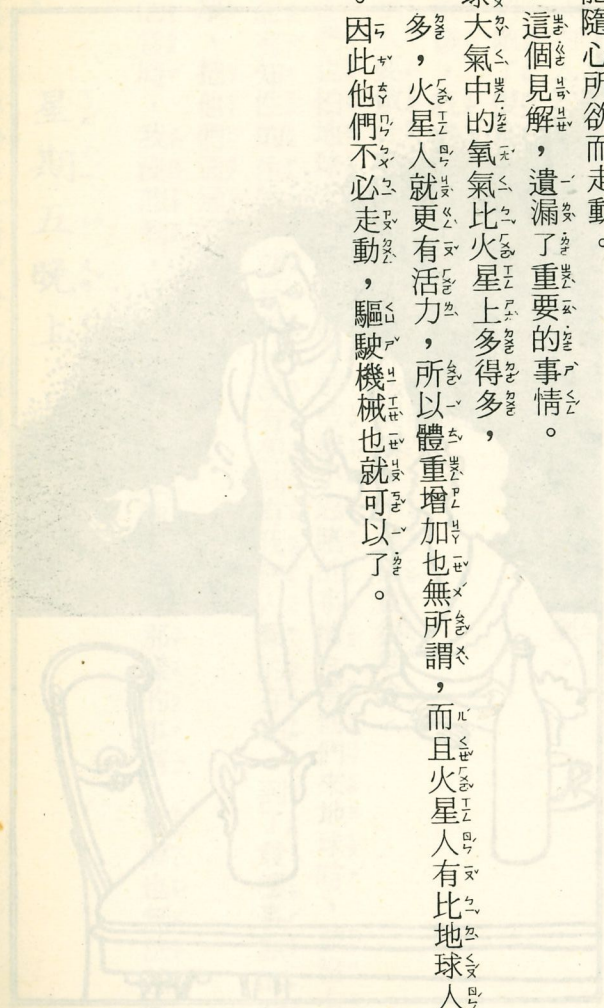 能隨心所欲而走動。
這個見解，遺漏了重要的事情。
球大氣中的氧氣比火星上多得多，
多，火星人就更有活力，所以體重增加也無所謂，而且火星人有比地球人
。因此他們不必走動，驅駛機械也就可以了。